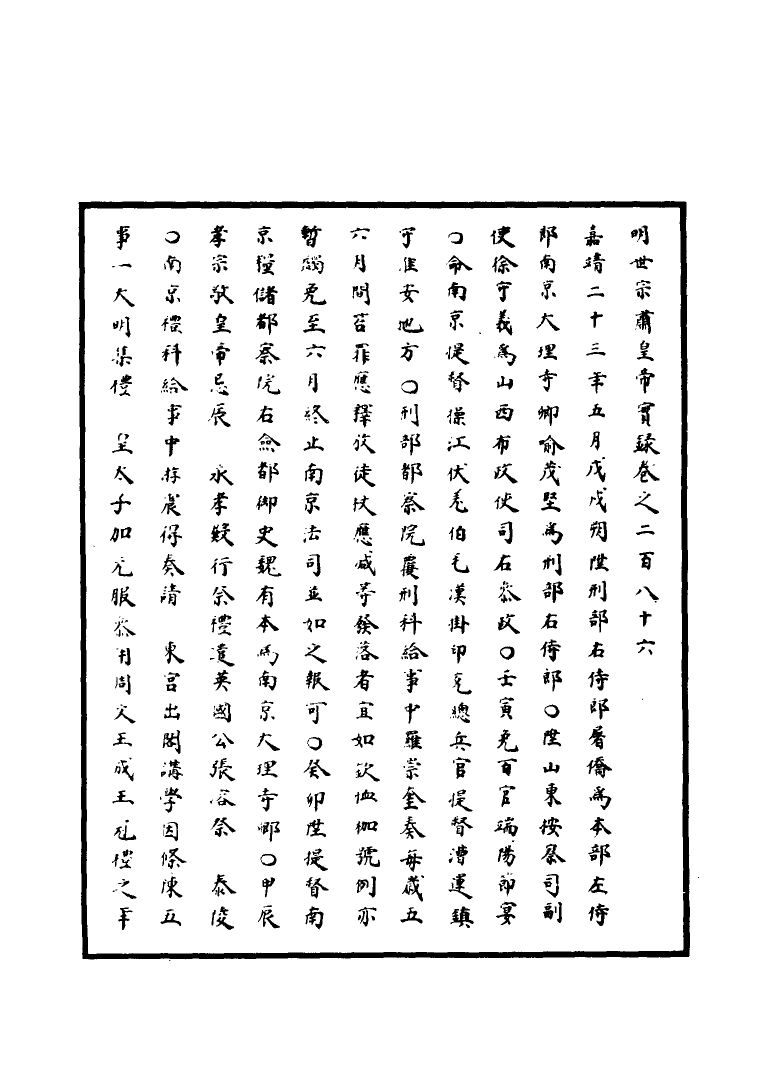 明世宗肅皇帝實錄卷之二百八十六
嘉靖二十三年五月戊戌朔陞刑部右侍郎屠僑為本部左侍
郎南京大理寺卿喻茂堅為刑部右侍郎○陞山東按察司副
使徐守義為山西布政使司右參政○壬寅免百官端陽節宴
○命南京提督操江伏羌伯毛漢掛印充總兵官提督漕運鎮
守淮安地方○刑部都察院覆刑科給事中羅崇奎奏每歲五
六月間笞罪應釋放徒杖應減等發落者宜如欽恤枷號例亦
暫蠲免至六月終止南京法司並如之報可○癸卯陞提督南
京糧儲都察院右僉都御史魏有本為南京大理寺卿○甲辰
孝宗敬皇帝忌辰 永孝殿行祭禮遣英國公張溶祭 泰陵
○南京禮科給事中游震得奏請 東宮出閣講學因條陳五
事一大明集禮 皇太子加元服參用周文王成王冠禮之年